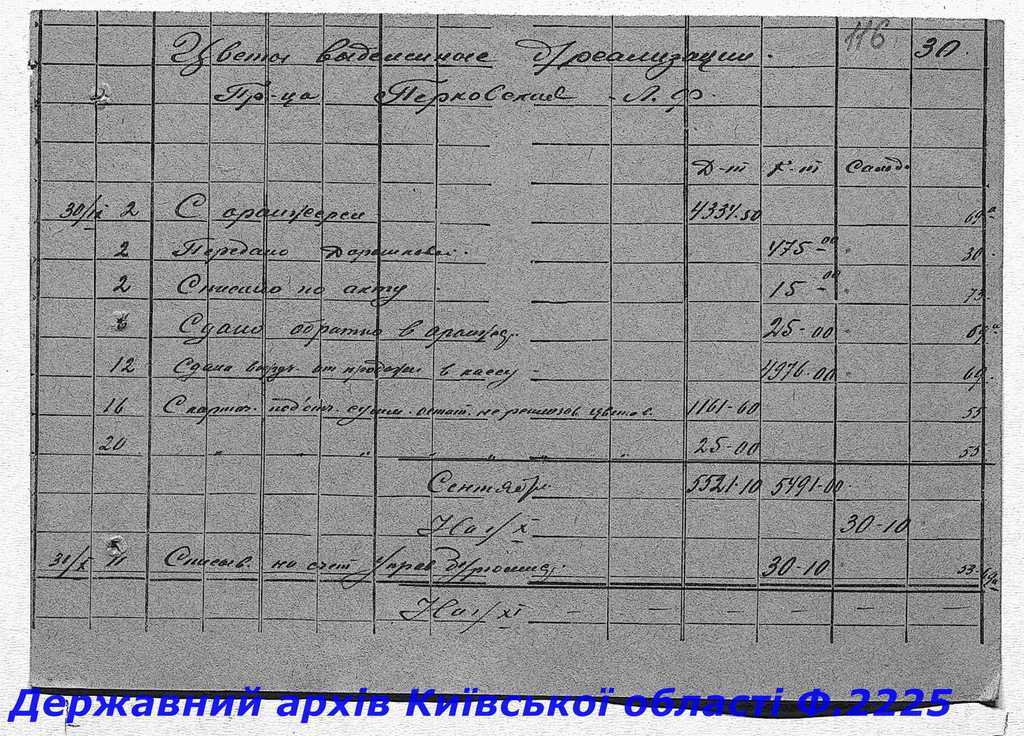 116
Цветы выделенные д/реализации. 30.
Пр-ца Перковская Л. Ф.
Д-т К-т Сальдо
30/IX 2 С оранжереи 4334.50 69а
2 Передано Дорошковой. 475-00 30
2 Списано по акту 15-00 73
Сдано обратно в оранжер. 25-00 69а
12 Сдана выруч. от продажи в кассу 4976-00 69
16 С карточ. подотч. сумм. остат. не реализов. цветов. 1161-60 55
20 " " " " " " " 25-00 55
Сентябрь 5521.10 5491-00
На 1/X 30-10
31/X 11 Списыв. на счет Управ. д/реализ. 30-10 53-69а
На 1/XI - - - - -
Державний архів Київської області Ф.2225